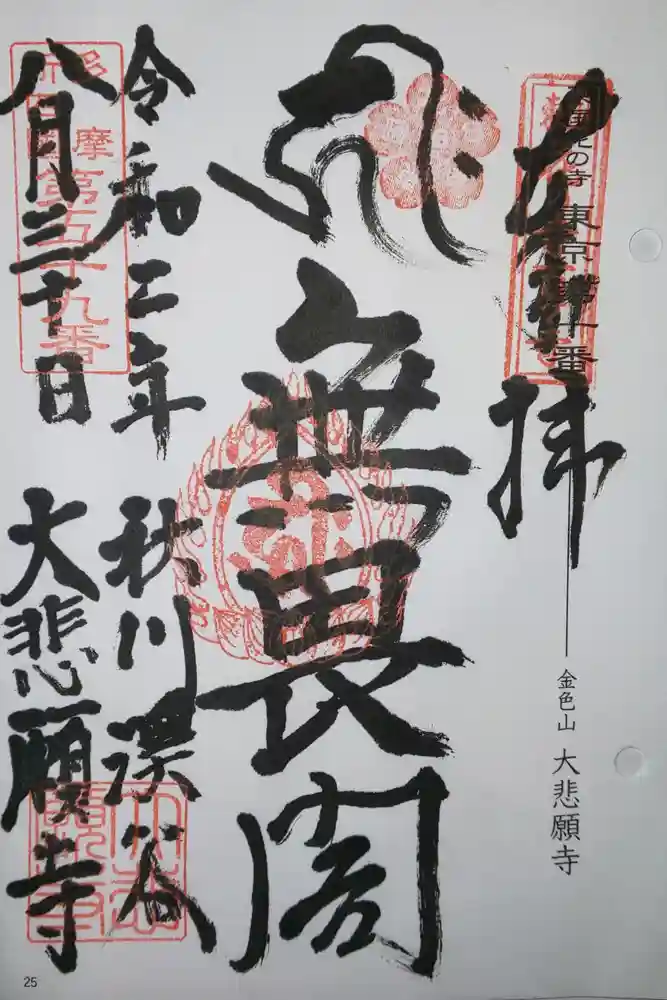 奉拝
東国花の寺 東京第十番
金色山 大悲願寺
無畏閣
令和二年
八月三十日
多摩
第五十九番
秋川渓谷
大悲願寺
25